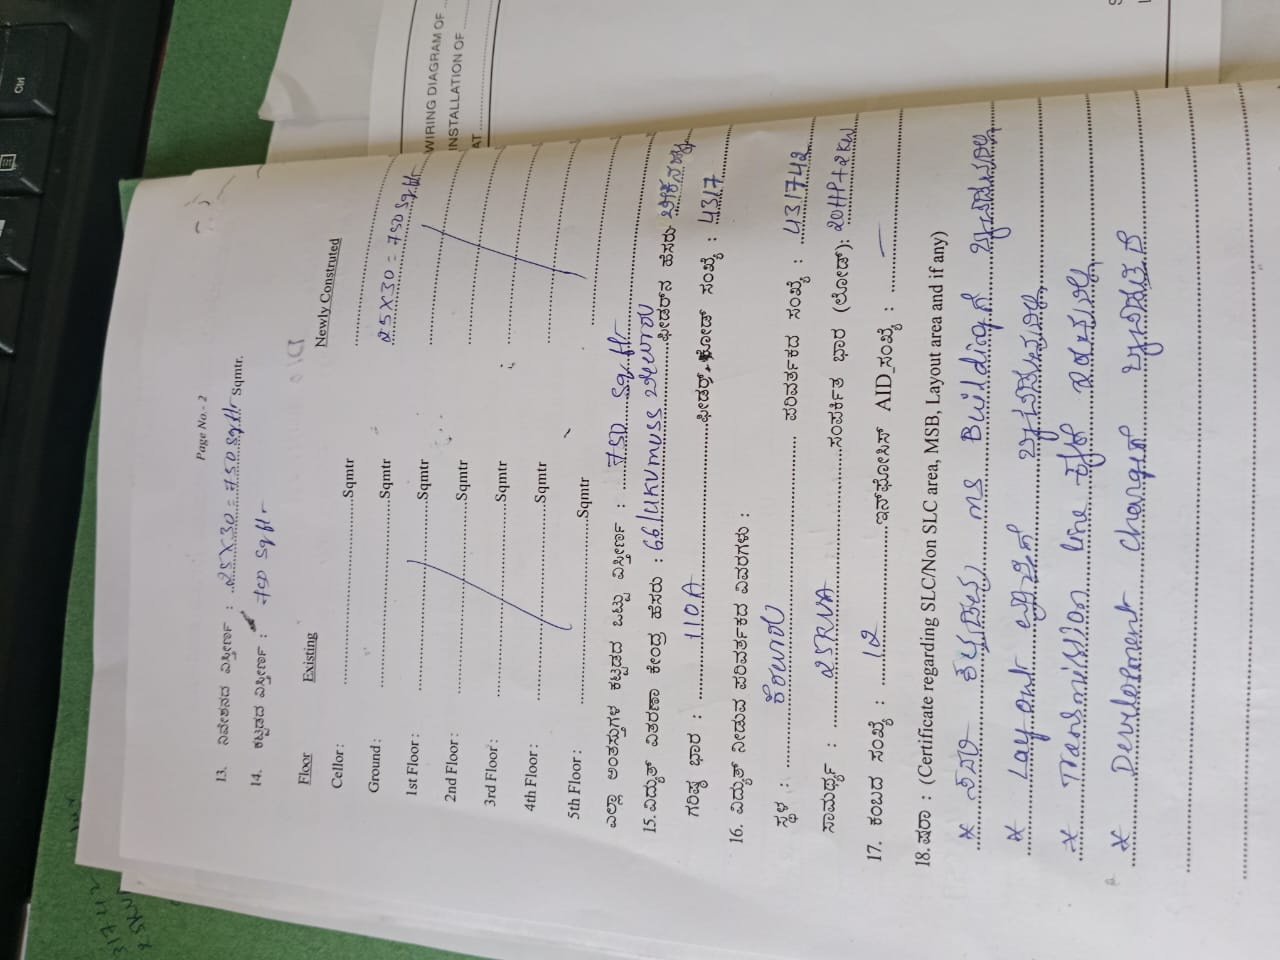 Page No.- 2
13. ನಿವೇಶನದ ವಿಸ್ತೀರ್ಣ : 25X30 = 750 sq.ftr Sqmtr.
14. ಕಟ್ಟಡದ ವಿಸ್ತೀರ್ಣ : 750 sqftr
Floor Existing Newly Construted
Cellor : Sqmtr
Ground : Sqmtr 25X30 = 750 Sq.ftr
1st Floor : Sqmtr
2nd Floor : Sqmtr
3rd Floor : Sqmtr
4th Floor : Sqmtr
5th Floor : Sqmtr
ಎಲ್ಲಾ ಅಂತಸ್ತುಗಳ ಕಟ್ಟಡದ ಒಟ್ಟು ವಿಸ್ತೀರ್ಣ : 750 Sq.ftr
15. ವಿದ್ಯುತ್ ವಿತರಣಾ ಕೇಂದ್ರ ಹೆಸರು : 66/11KV MUSS ಫೀಡರ್‌ನ ಹೆಸರು
ಗರಿಷ್ಠ ಭಾರ : 110A ಫೀಡರ್ ಕೋಡ್ ಸಂಖ್ಯೆ : 4317
16. ವಿದ್ಯುತ್ ನೀಡುವ ಪರಿವರ್ತಕದ ವಿವರಗಳು :
ಸ್ಥಳ : ಪರಿವರ್ತಕದ ಸಂಖ್ಯೆ : 431742
ಸಾಮರ್ಥ್ಯ : 25KVA ಸಂಪರ್ಕಿತ ಭಾರ (ಲೋಡ್) : 20HP+2KW
17. ಕಂಬದ ಸಂಖ್ಯೆ : 12 ಇನ್‌ಫೋಸಿಸ್ AID ಸಂಖ್ಯೆ : —
18. ಷರಾ : (Certificate regarding SLC/Non SLC area, MSB, Layout area and if any)
* ಸದರಿ ಕಟ್ಟಡವು MS Buildingಗೆ ಒಳಪಡುವುದಿಲ್ಲ
* Layout ಒಳಪಡುವುದಿಲ್ಲ
* Transmission line
* Development chargeಗೆ
WIRING DIAGRAM OF
INSTALLATION OF
AT
Ctrl